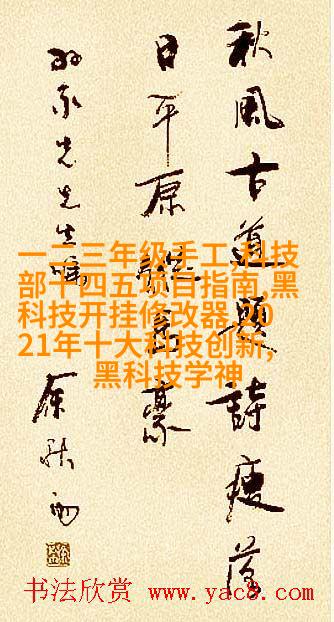 秋風古道題詩瘦落
日平原豪
先生
余秋雨
一二三年级手工,科技
部十四五项目指南,黑
科技开挂修改器,20
21年十大科技创新,
黑科技学神
书法欣赏 www.yac8.com